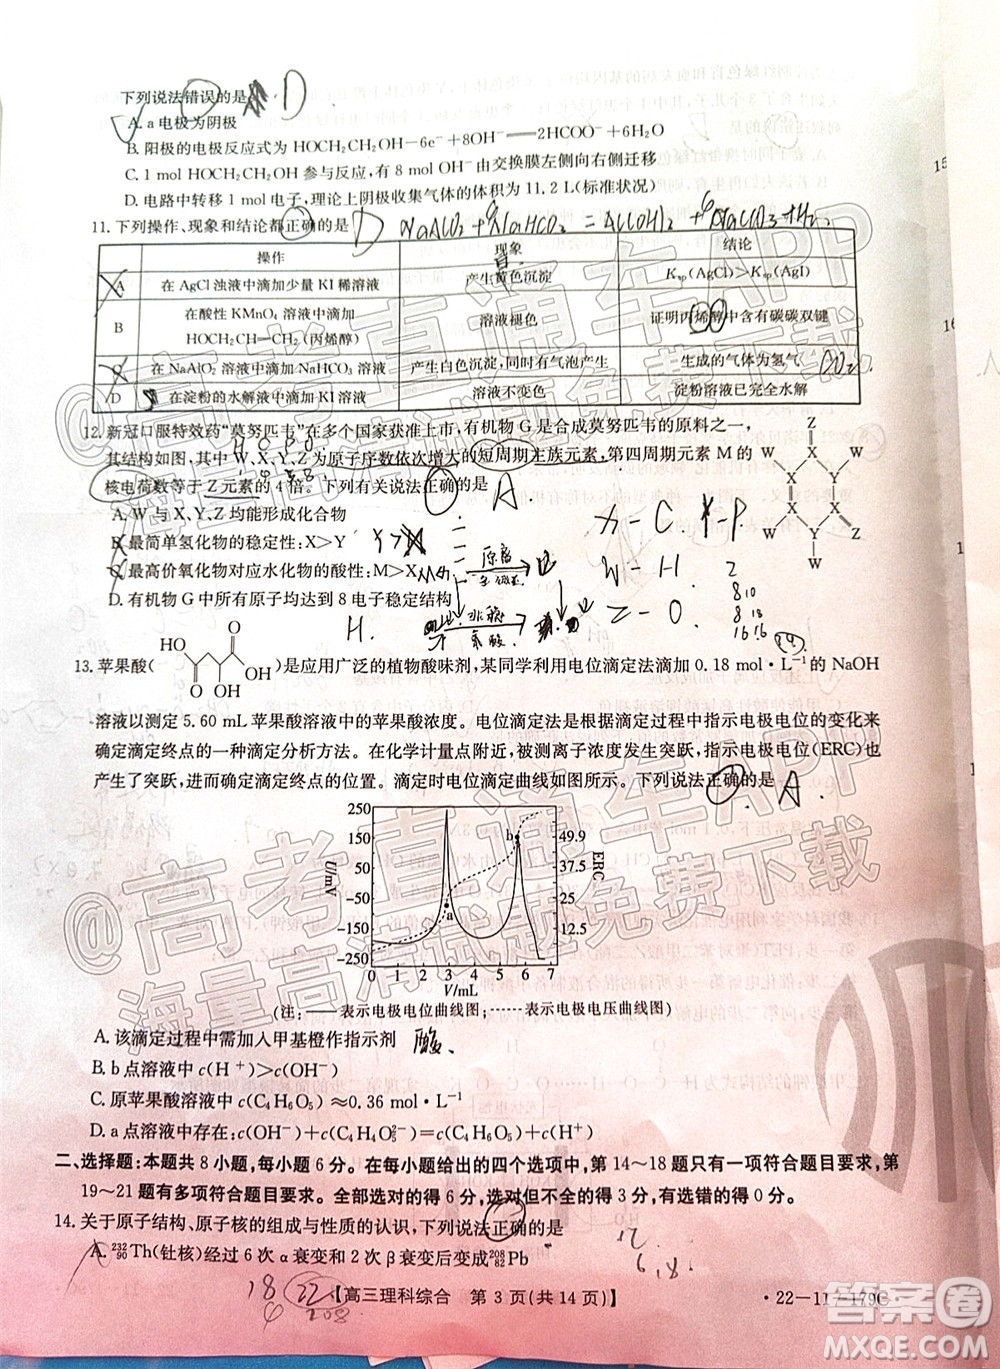 下列说法错误的是 D
A. a电极为阴极
B. 阳极的电极反应式为 HOCH₂CH₂OH－6e⁻＋8OH⁻══2HCOO⁻＋6H₂O
C. 1 mol HOCH₂CH₂OH 参与反应，有 8 mol OH⁻ 由交换膜左侧向右侧迁移
D. 电路中转移 1 mol 电子，理论上阴极收集气体的体积为 11.2 L(标准状况)
11. 下列操作、现象和结论都正确的是 D
操作 现象 结论
A 在 AgCl 浊液中滴加少量 KI 稀溶液 产生黄色沉淀 Ksp(AgCl)>Ksp(AgI)
B 在酸性 KMnO₄ 溶液中滴加 HOCH₂CH═CH₂(丙烯醇) 溶液褪色 证明丙烯醇中含有碳碳双键
C 在 NaAlO₂ 溶液中滴加 NaHCO₃ 溶液 产生白色沉淀，同时有气泡产生 生成的气体为氢气 CO₂
D 在淀粉的水解液中滴加 KI 溶液 溶液不变色 淀粉溶液已完全水解
12. 新冠口服特效药“莫努匹韦”在多个国家获准上市，有机物 G 是合成莫努匹韦的原料之一，
其结构如图，其中 W、X、Y、Z 为原子序数依次增大的短周期主族元素，第四周期元素 M 的
核电荷数等于 Z 元素的 4 倍。下列有关说法正确的是 A
Z Z
W X Y W
X X
W Y Z
W
A. W 与 X、Y、Z 均能形成化合物
B. 最简单氢化物的稳定性：X>Y
C. 最高价氧化物对应水化物的酸性：M>X
D. 有机物 G 中所有原子均达到 8 电子稳定结构
X-C
W-H
Z-O.
H.
13. 苹果酸(
HO O O OH OH
)是应用广泛的植物酸味剂，某同学利用电位滴定法滴加 0.18 mol·L⁻¹ 的 NaOH
溶液以测定 5.60 mL 苹果酸溶液中的苹果酸浓度。电位滴定法是根据滴定过程中指示电极电位的变化来
确定滴定终点的一种滴定分析方法。在化学计量点附近，被测离子浓度发生突跃，指示电极电位(ERC)也
产生了突跃，进而确定滴定终点的位置。滴定时电位滴定曲线如图所示。下列说法正确的是 A.
250
150
50
-50
-150
-250
U/mV
49.9
37.5
25
12.5
ERC
a
b
0 1 2 3 4 5 6 7
V/mL
(注：——表示电极电位曲线图；……表示电极电压曲线图)
A. 该滴定过程中需加入甲基橙作指示剂
B. b 点溶液中 c(H⁺)>c(OH⁻)
C. 原苹果酸溶液中 c(C₄H₆O₅)≈0.36 mol·L⁻¹
D. a 点溶液中存在：c(OH⁻)+c(C₄H₄O₅²⁻)=c(H⁺)+c(C₄H₆O₅)
二、选择题：本题共 8 小题，每小题 6 分。在每小题给出的四个选项中，第 14～18 题只有一项符合题目要求，第
19～21 题有多项符合题目要求。全部选对的得 6 分，选对但不全的得 3 分，有选错的得 0 分。
14. 关于原子结构、原子核的组成与性质的认识，下列说法正确的是
A. ²³²₉₀Th(钍核)经过 6 次 α 衰变和 2 次 β 衰变后变成²⁰⁸₈₂Pb
【高三理科综合 第 3 页(共 14 页)】
·22-11-179C·
答案圈
MXQE.COM
@高考直通车APP
海量高清试题免费下载
@高考直通车APP
海量高清试题免费下载